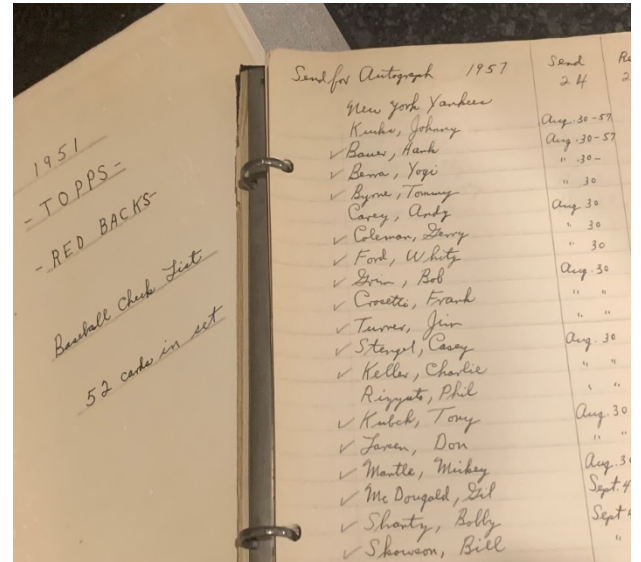 1951
- TOPPS -
- RED BACKS -
Baseball Check List
52 cards in set
Send for Autograph 1957 Send
24 2
New York Yankees
Kucks, Johnny Aug. 30-57
✓ Bauer, Hank Aug. 30-57
✓ Berra, Yogi " 30-
✓ Byrne, Tommy " 30
Carey, Andy Aug 30
✓ Coleman, Gerry " 30
✓ Ford, Whity " 30
✓ Grim, Bob Aug. 30
✓ Crosetti, Frank " "
✓ Turner, Jim " "
✓ Stengel, Casey Aug. 30
✓ Keller, Charlie " "
Rizzuto, Phil " "
✓ Kubek, Tony Aug. 30
✓ Larsen, Don " "
✓ Mantle, Mickey Aug. 3
✓ Mc Dougald, Gil Sept. 4
✓ Shantz, Bobby Sept
✓ Skowson, Bill "